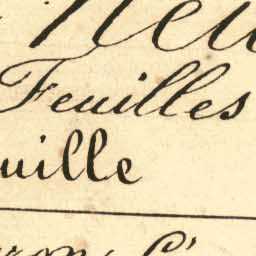 Neu
Feuilles
uille